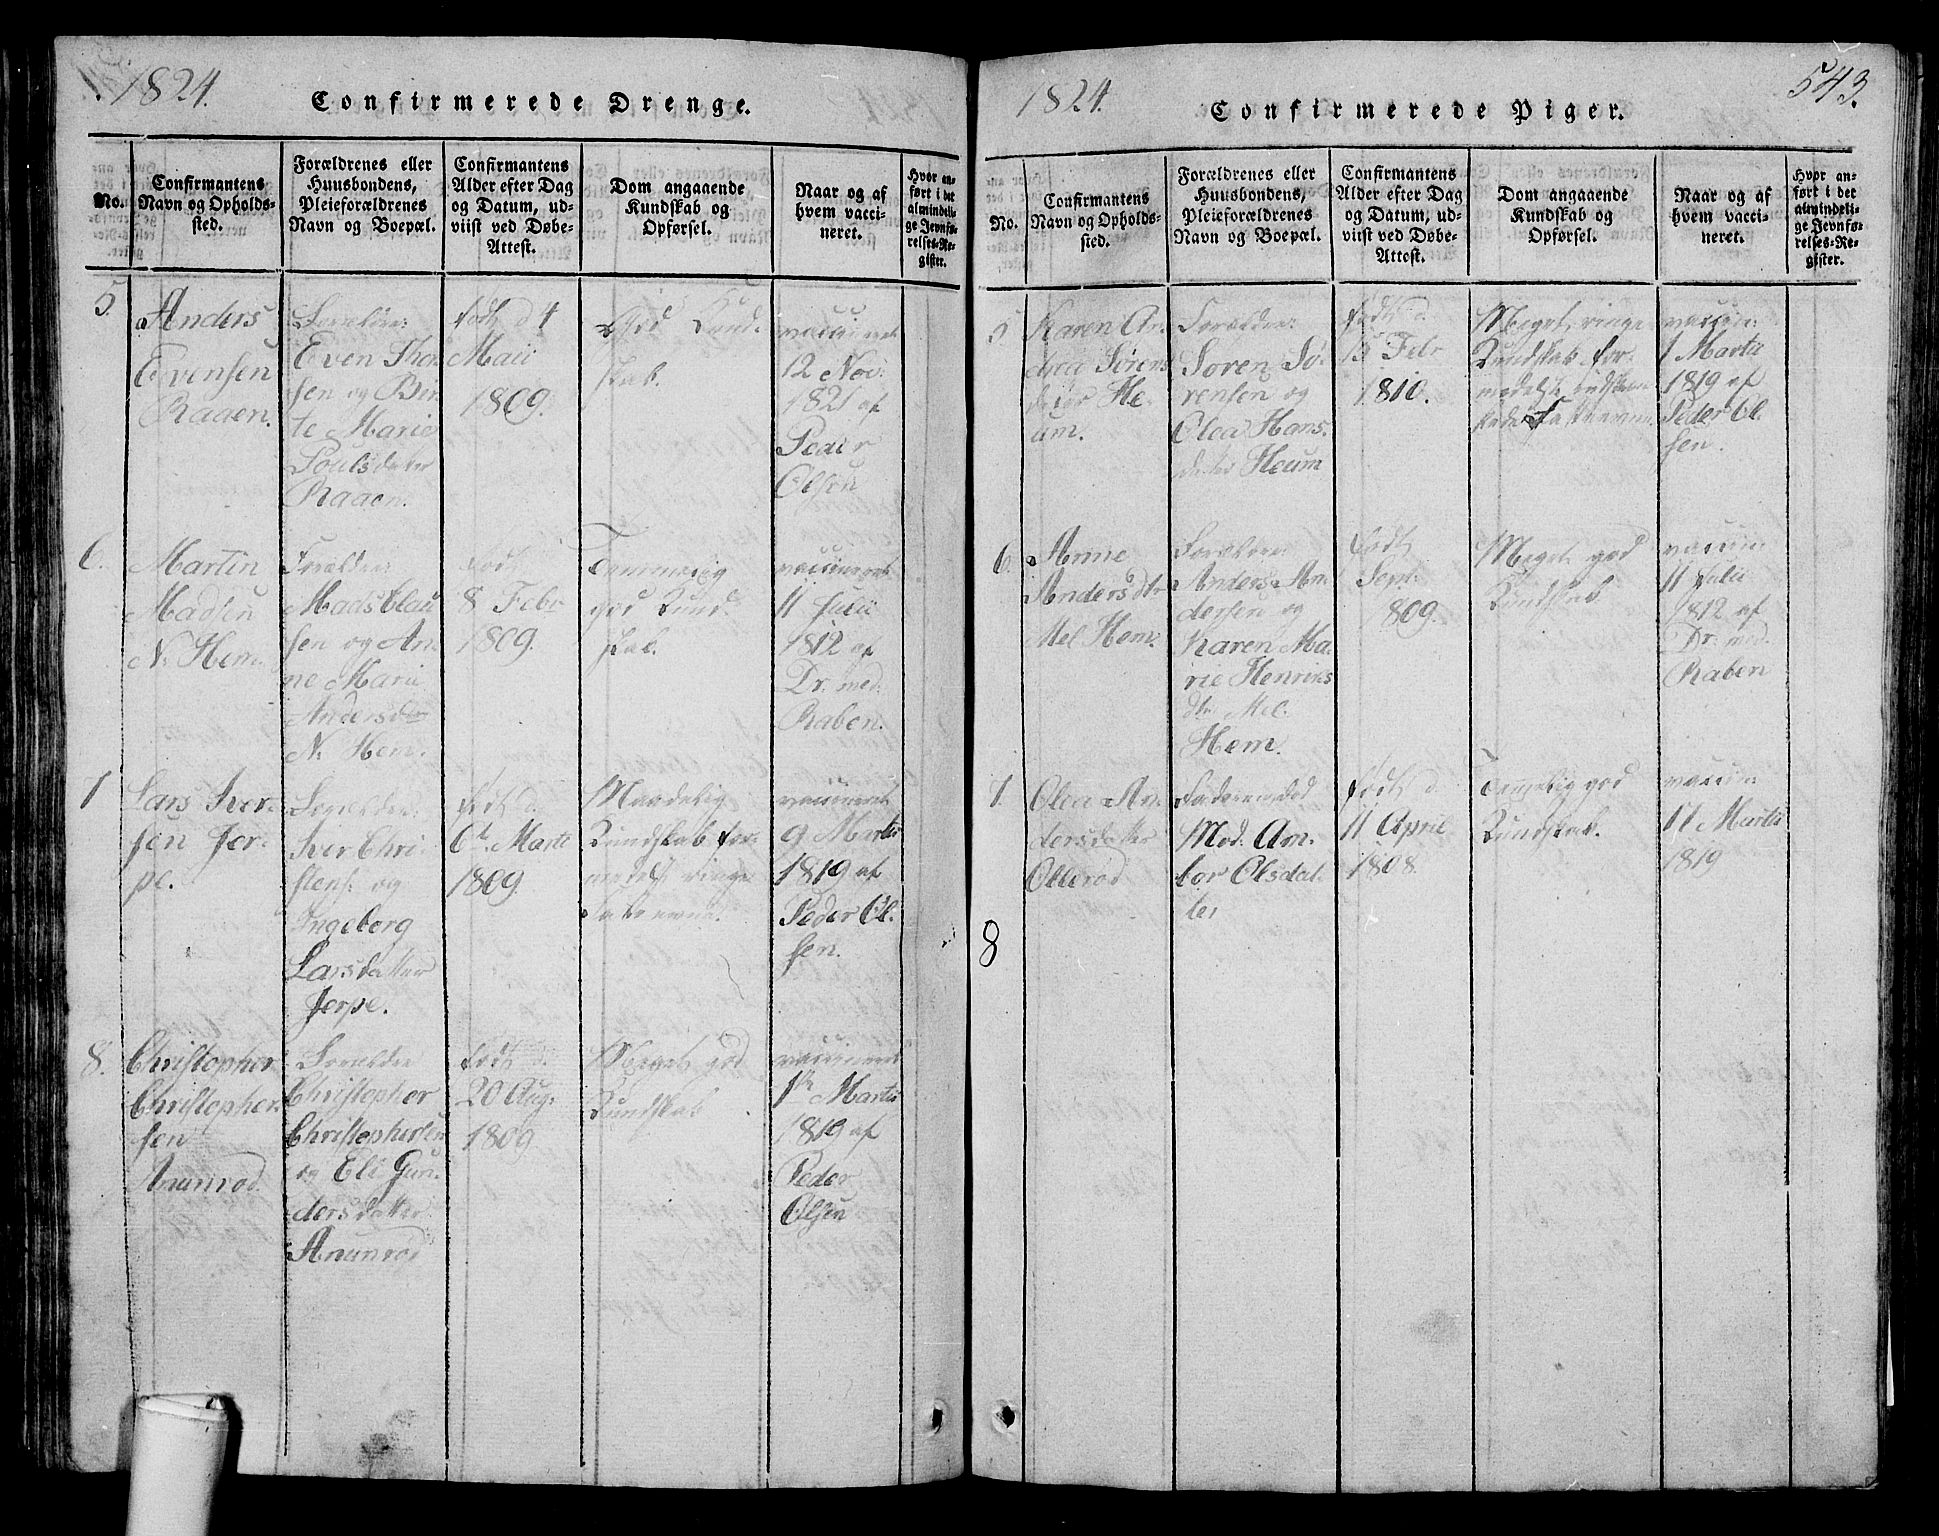 1824.
Confirmerede Drenge.
No.
Confirmantens
Navn og Opholds-
sted.
Forældrenes eller
Huusbondens,
Pleieforældrenes
Navn og Boepæl.
Confirmantens
Alder efter Dag
og Datum, ud-
viist ved Døbe-
Attest.
Dom angaaende
Kundskab og
Opførsel.
Naar og af
hvem vacci-
neret.
Hvor an-
ført i det
almindeli-
ge Jevnfø-
relses-Re-
gister.
5.
Anders
Evensen
Raaen.
Forældre:
Even Thor
sen og Bir
te Marie
Poulsdatter
Raaen.
født d 4
Maii
1809.
God Kund-
skab.
vaccineret
12 Nov:
1821 af
Peder
Olsen
6.
Martin
Madsen
N. Hem.
Forældre:
Mads Clau
sen og An-
ne Marie
Andersdatter
N. Hem.
født
8 Febr
1809.
Temmelig
god Kund-
skab.
vaccineret
11 Julii
1812 af
Dr. med.
Raben.
7
Lars Iver-
sen Jer-
pe.
Forældre:
Iver Chri-
stens: og
Ingeborg
Larsdatter
Jerpe.
født d.
6t Martii
1809.
Maadelig
Kundskab for-
medelst ringe
vaccineret
9 Martii
1819 af
Peder Ol-
sen.
8.
Christopher
Christopher-
sen
Anumrød.
Forældre
Christopher
Christophersen
og Eli Gun-
dersdatter
Anumrød
født d.
20 Aug.
1809
Meget god
Kundskab
vaccineret
1te Martii
1819 af
Peder
Olsen
1824.
Confirmerede Piger.
543.
No.
Confirmantens
Navn og Opholds-
sted.
Forældrenes eller
Huusbondens,
Pleieforældrenes
Navn og Boepæl.
Confirmantens
Alder efter Dag
og Datum, ud-
viist ved Døbe-
Attest.
Dom angaaende
Kundskab og
Opførsel.
Naar og af
hvem vacci-
neret.
Hvor an-
ført i det
almindeli-
ge Jevnfø-
relses-Re-
gister.
5
Karen An-
drea Sørens
datter He-
um.
Forældre:
Søren Sø-
rensen og
Olea Hans-
datter Heum
født d.
15 Febr
1810.
Meget ringe
Kundskab for-
medelst
vaccin:
1 Martii
1819 af
Peder Ol-
sen.
6.
Anne
Andersdtr
Mel Hem.
Forældre:
Anders An-
dersen og
Karen Ma-
rie Henriks
dtr Mel.
Hem.
født
Sept.
1809.
Meget god
Kundskab
vaccin:
11 Julii
1812 af
Dr. med.
Raben
7.
Olea An-
dersdatter
Ollerød
Faderen død
Mod. Am-
bor Olsdat-
ter
født d.
11 April
1808.
Temmelig god
Kundskab.
vaccin:
17 Martii
1819
8